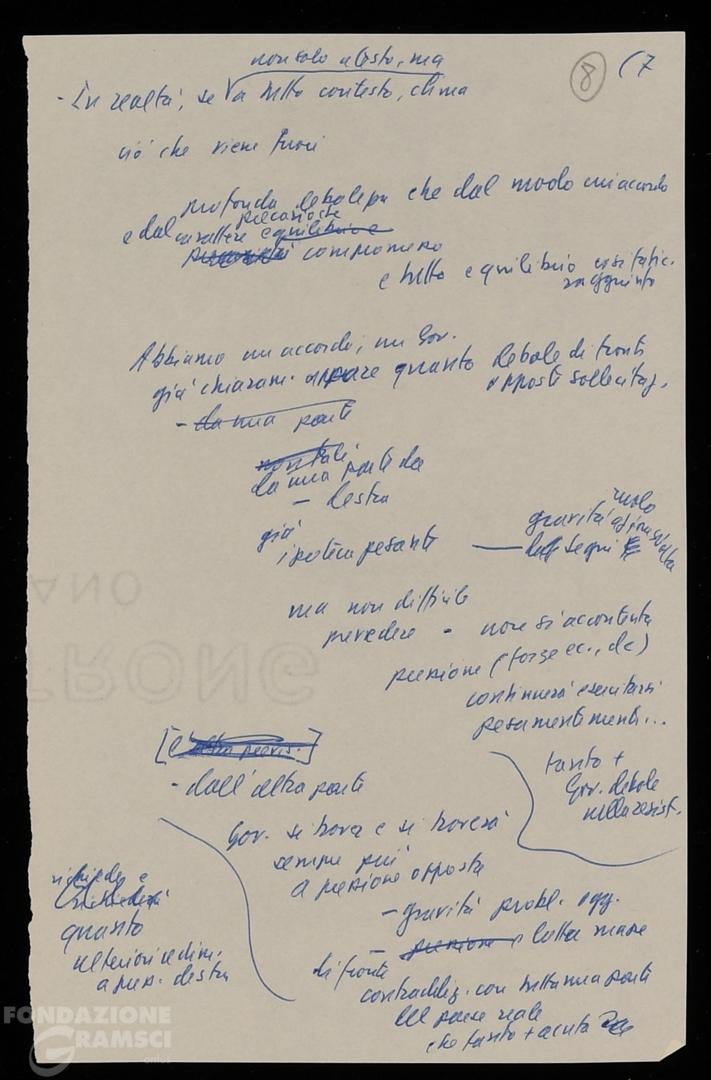 8 (7
non solo a testo, ma
- In realtà, se a tutto contesto, clima
ciò che viene fuori
profonda debolezza che dal modo cui accordo
precarietà
e dal carattere equilibrio e
compromesso
e tutto equilibrio così fatic.
raggiunto
Abbiamo un accordo, un Gov.
già chiaram. appare quanto debole di fronte
opposte sollecitaz.
- da una parte
da una parte da
- destra
già
ipoteca pesante
ruolo
gravità
segni
ma non difficile
prevedere - non si accontenta
pressione (forze ec., dc)
continuerà esercitarsi
pesantemente...
tanto +
Gov. debole
nella resist.
- dall'altra parte
Gov. si trova e si troverà
sempre più
a pressione opposta
- gravità probl. ogg.
- pressione e lotta masse
di fronte
contraddiz. con tutta una parte
del paese reale
che tanto + acuta
richiede e
richiederà
quanto
ulteriori cedim.
a press. destra
ANO
TRONG
FONDAZIONE
GRAMSCI
onlus